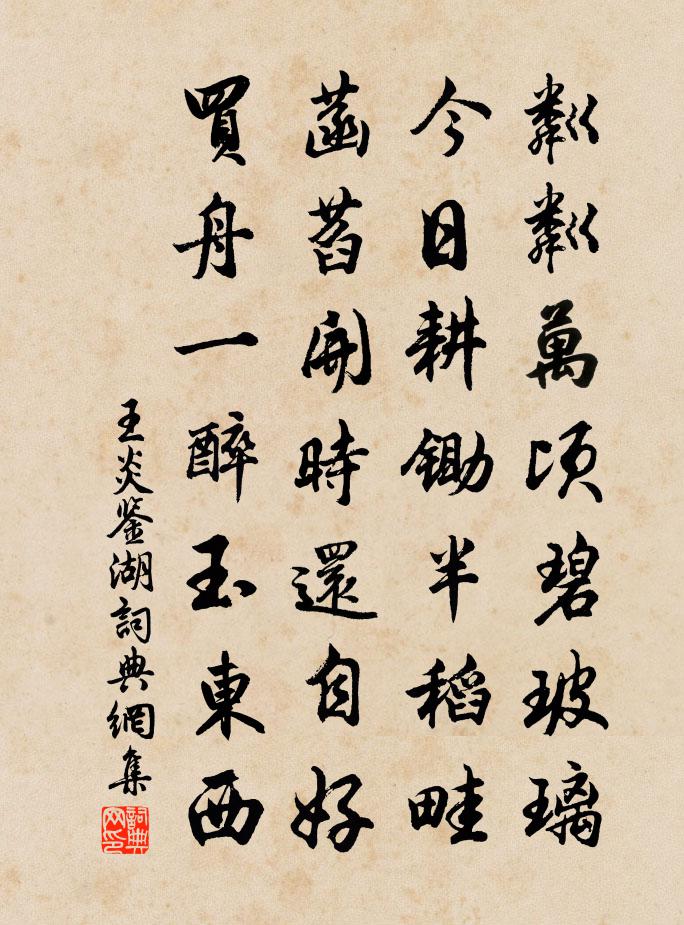 粼粼萬頃碧玻璃
今日耕鋤半稻畦
菡萏開時還自好
買舟一醉玉東西
王炎鉴湖詞典網集
詞典網印